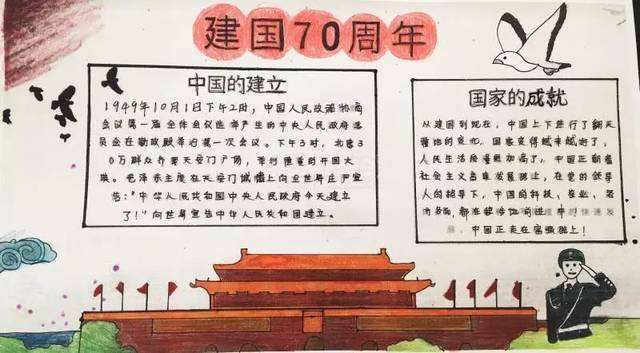 建国70周年
中国的建立
1949年10月1日下午2时,中国人民政治协商
会议第一届全体会议选举产生的中央人民政府委
员会在勤政殿举行第一次会议。下午3时,北京3
0万群众齐聚天安门广场,举行隆重的开国大
典。毛泽东主席在天安门城楼上向全世界庄严宣
告:"中华人民共和国中央人民政府今天建立
了!"向世界宣告中华人民共和国建立。
国家的成就
从建国到现在,中国上下进行了翻天
覆地的变化,国家变得越来越进了,
人民生活质量最加高了,中国正朝着
社会主义高速发展路上,在党的领导
人的指导下,中国的科技、农业、
市场都
的快速发
展,中国正走在富强路上!